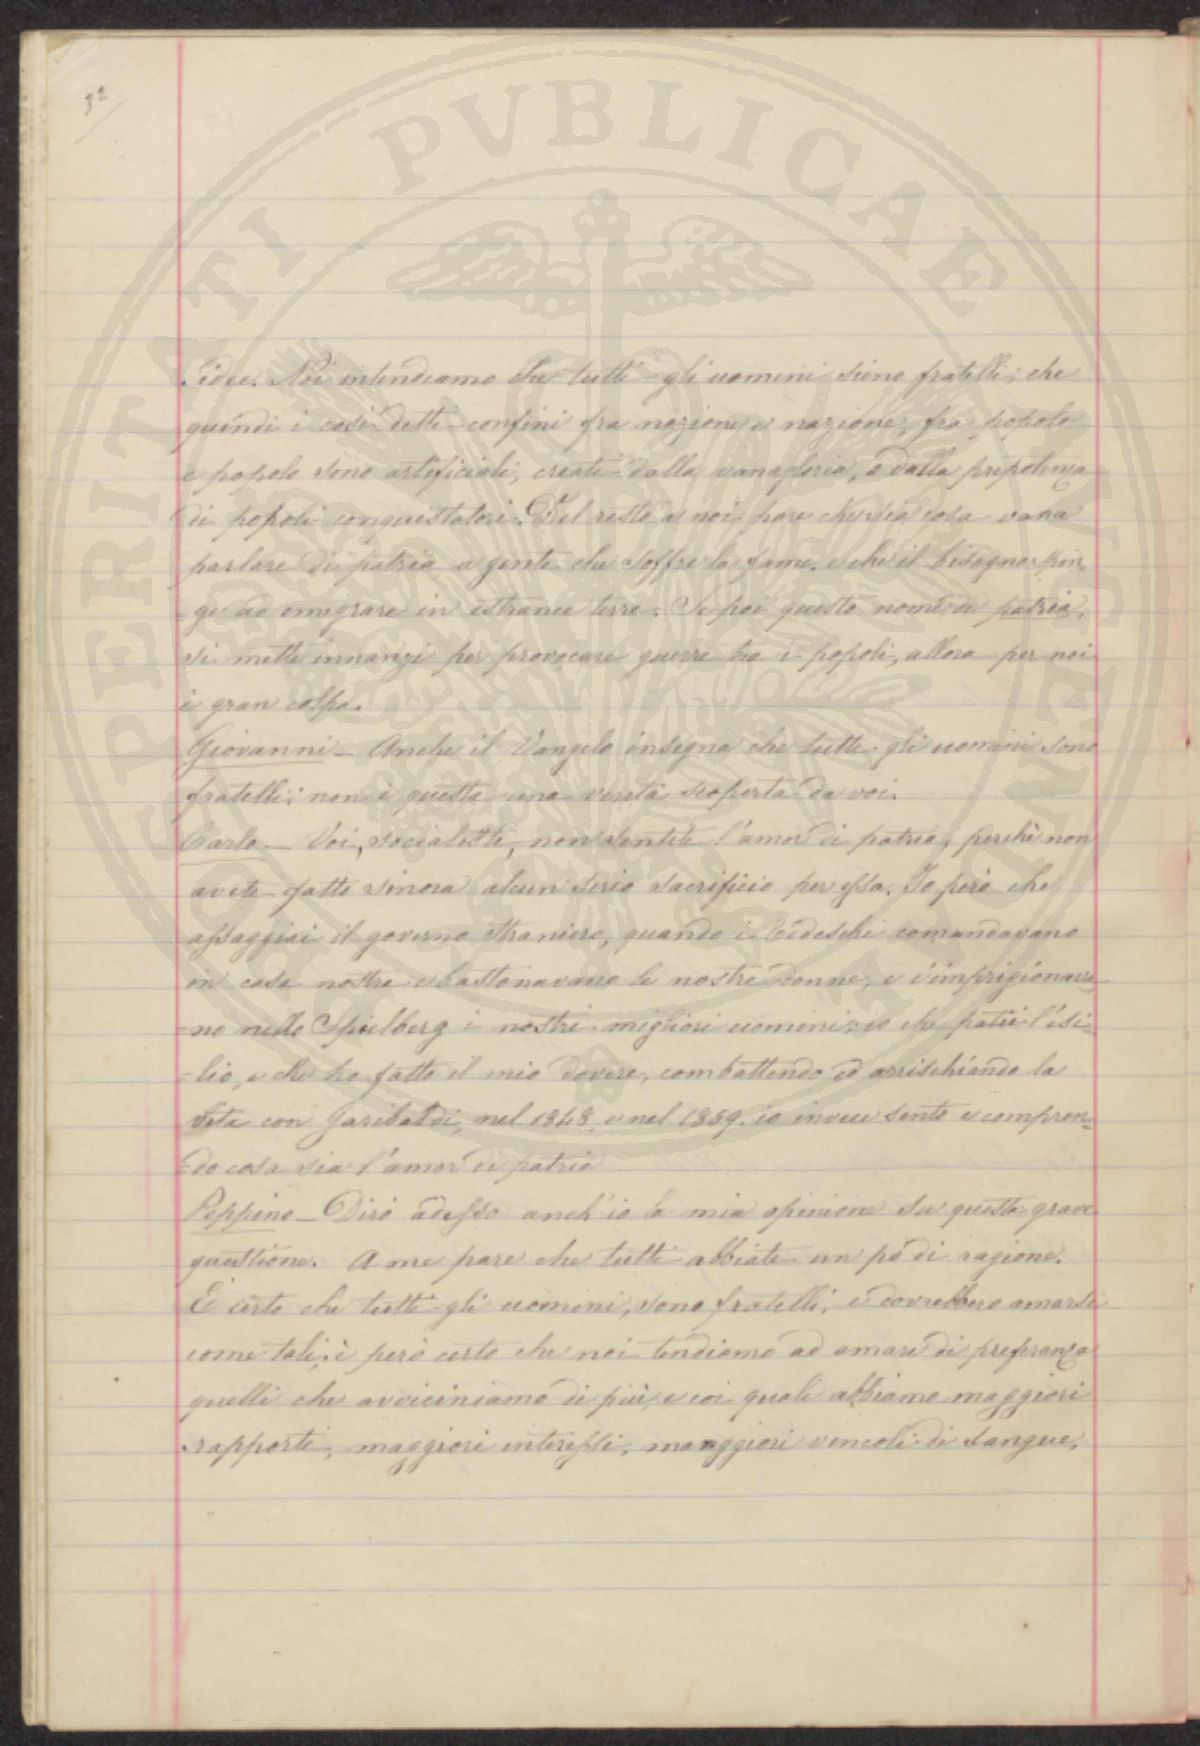 32
idee. Noi intendiamo che tutti gli uomini sieno fratelli; che
quindi i così detti confini fra nazione e nazione, fra popolo
e popolo sono artificiali, creati dalla vanagloria, e dalla prepotenza
di popoli conquistatori. Del resto a noi pare che sia cosa vana
parlare di patria a gente che soffre la fame, e che il bisogno spin-
-ge ad emigrare in estranee terre. Se poi questo nome di patria,
si mette innanzi per provocare guerre tra i popoli, allora per noi
è gran colpa.
Giovanni – Anche il Vangelo insegna che tutti gli uomini sono
fratelli; non è questa una verità scoperta da voi.
Carlo – Voi, socialisti, non sentite l'amor di patria, perchè non
avete fatto sinora alcun serio sacrificio per essa. Io però che
assaggiai il governo straniero, quando i Tedeschi comandavano
in casa nostra e bastonavano le nostre donne, e c'imprigionava-
-no nello Spielberg i nostri migliori uomini; io che patii l'esi-
-lio, e che ho fatto il mio dovere, combattendo ed arrischiando la
vita con Garibaldi, nel 1848, e nel 1859. io invece sento e compren-
-do cosa sia l'amor di patria
Peppino – Dirò adesso anch'io la mia opinione su questa grave
questione. A me pare che tutti abbiate un pò di ragione.
È certo che tutti gli uomini, sono fratelli, e dovrebbero amarsi
come tali; è però certo che noi tendiamo ad amare di preferenza
quelli che avviciniamo di più, e coi quali abbiamo maggiori
rapporti, maggiori interessi, maggiori vincoli di sangue,
PERITATI PVBLICAE